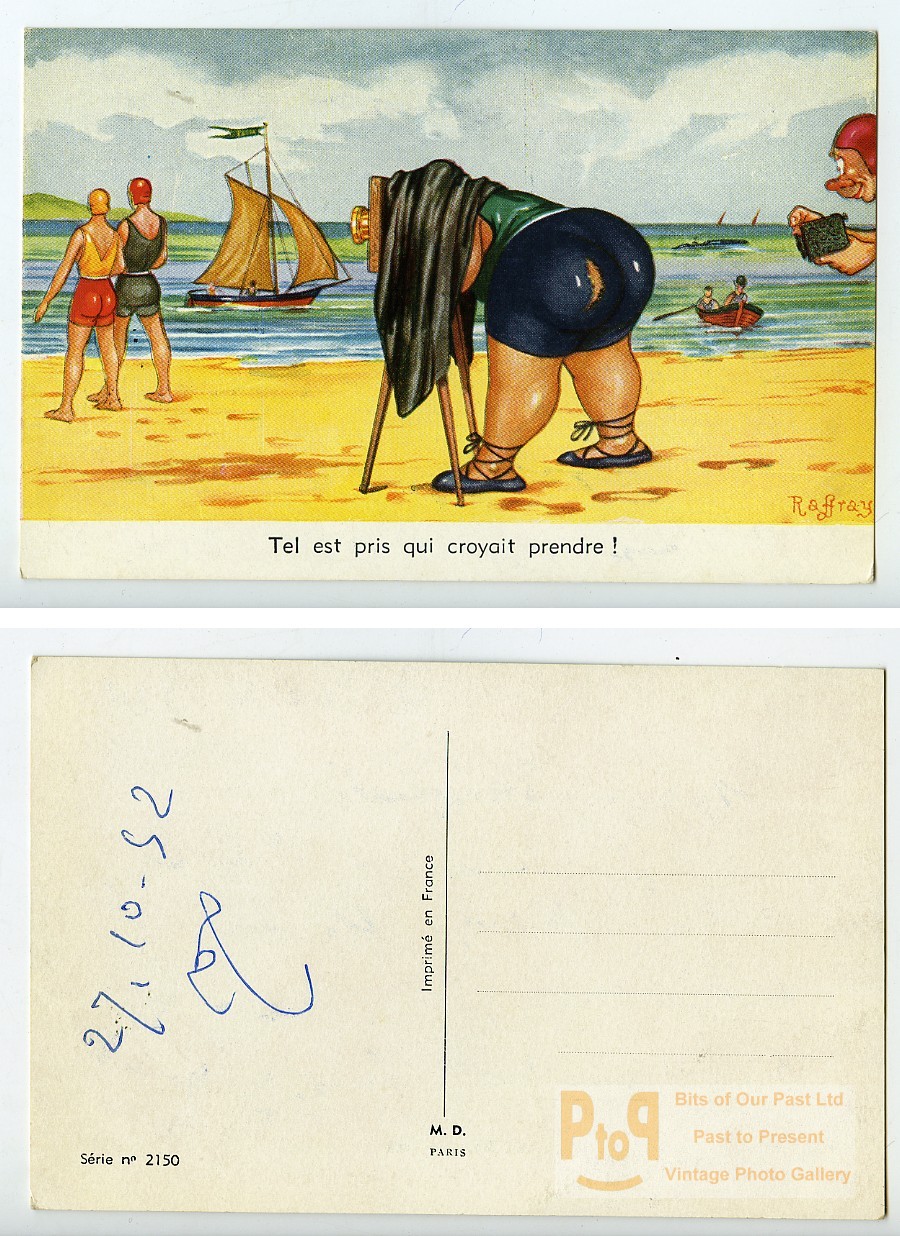 Raffray
Tel est pris qui croyait prendre !
27.10-52
Imprimé en France
M. D.
PARIS
Série nº 2150
PtoP
Bits of Our Past Ltd
Past to Present
Vintage Photo Gallery